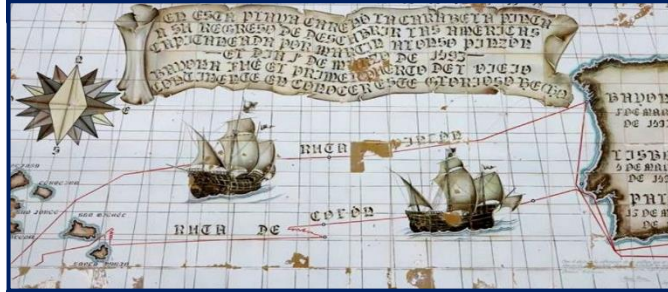 EN ESTA PLAYA LA CARABELA PINTA
A SU REGRESO DE DESCUBRIR LAS AMERICAS
CAPITANEADA POR MARTIN ALONSO PINZON
EL DIA 1 DE DE 1493
BAYONA FUE EL PRIMER PUERTO DEL VIEJO
CONTINENTE EN CONOCER ESTE GLORIOSO HECHO
E
S
RUTA PINZON
RUTA DE COLON
SAN MIGUEL
SANTA MARIA
BAYONA
DE
LISB
DE
PAL
15 DE
DE